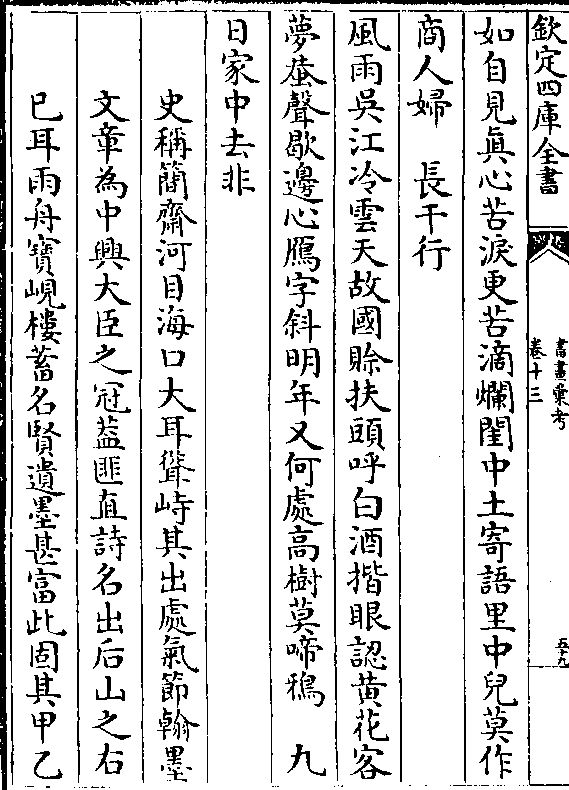 欽定四庫全書
書畫彙考
卷十三
五十九
如自見真心苦淚更苦滴爛閨中土寄語里中兒莫作
商人婦　長干行
風雨吳江冷雲天故國賖扶頭呼白酒揩眼認黄花客
夢蛩聲歇邊心鴈字斜明年又何處高樹莫啼鵶　九
日家中去非
史稱簡齋河目海口大耳聳峙其出處氣節翰墨
文章為中興大臣之冠葢匪直詩名出后山之右
已耳雨舟寶峴樓蓄名賢遺墨甚富此固其甲乙